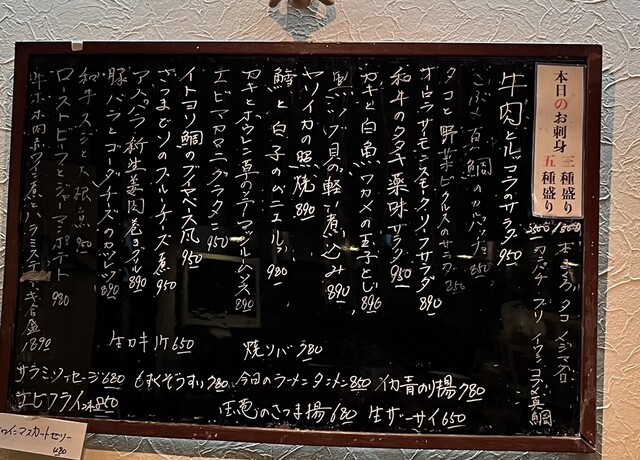 本日のお刺身 三種盛り 五種盛り
タコ
カンパチ ブリ イワシ コブ〆真鯛
牛肉とルッコラのサラダ 950
真鯛のカルパッチョ 850
タコと野菜ピクルスのサラダ 850
オーロラサーモンスモークハーフサラダ 890
和牛のタタキ薬味サラダ 950
カキと白魚ワカメの玉子とじ 890
貝の軽い煮込み 890
ヤリイカの照焼 890
鱈と白子のムニエル 980
カキとホウレン草のシテーマッシュルームソース 890
エビマカロニグラタン 950
イトヨリ鯛のブイヤベース風 950
さつまどりのブルーチーズ煮 950
アスパラ新生姜肉巻きフル 890
豚バラとゴーダチーズのカツレツ 890
和牛スジ大根煮 950
ローストビーフとジャーマンポテト 980
牛ホホ肉赤ワイン煮とハラミステーキ合盛 1890
生カキ1ケ 650
焼ソバ 780
サラミ、ソーセージ 680
もずくぞうすい 780
今日のラーメンタンメン 850
イカ青のり揚げ 780
エビフライ 2本 850
のさつま揚 680
生ザーサイ 650
マスカットゼリー
480